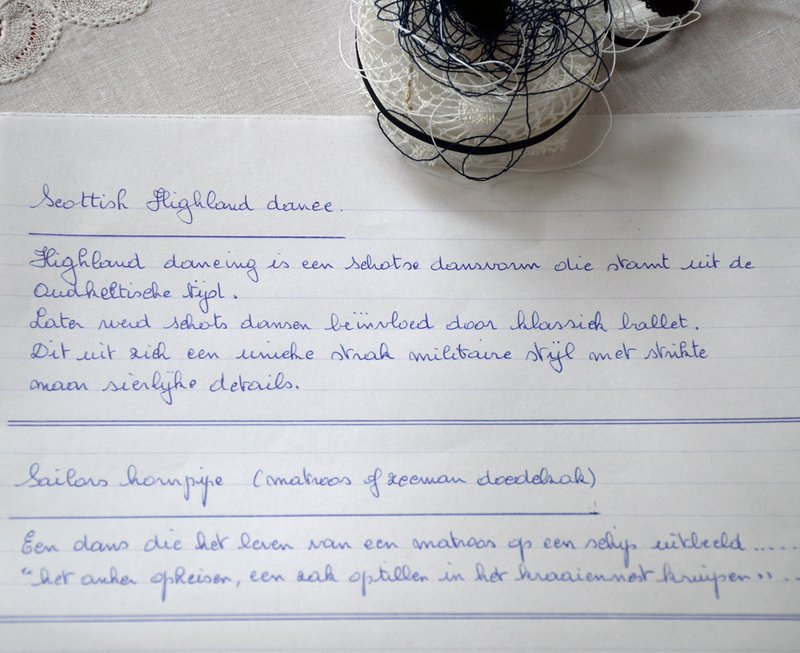 Scottish Highland dance.
Highland dancing is een schotse dansvorm die stamt uit de
Oudkeltische tijd.
Later werd schots dansen beïnvloed door klassiek ballet.
Dit uit zich een unieke strak militaire stijl met strikte
maar sierlijke details.
Sailors hornpipe (matroos of zeeman doedelzak)
Een dans die het leven van een matroos op een schip uitbeeld.....
"het anker opheisen, een zak optillen in het kraaiennest kruipen"...